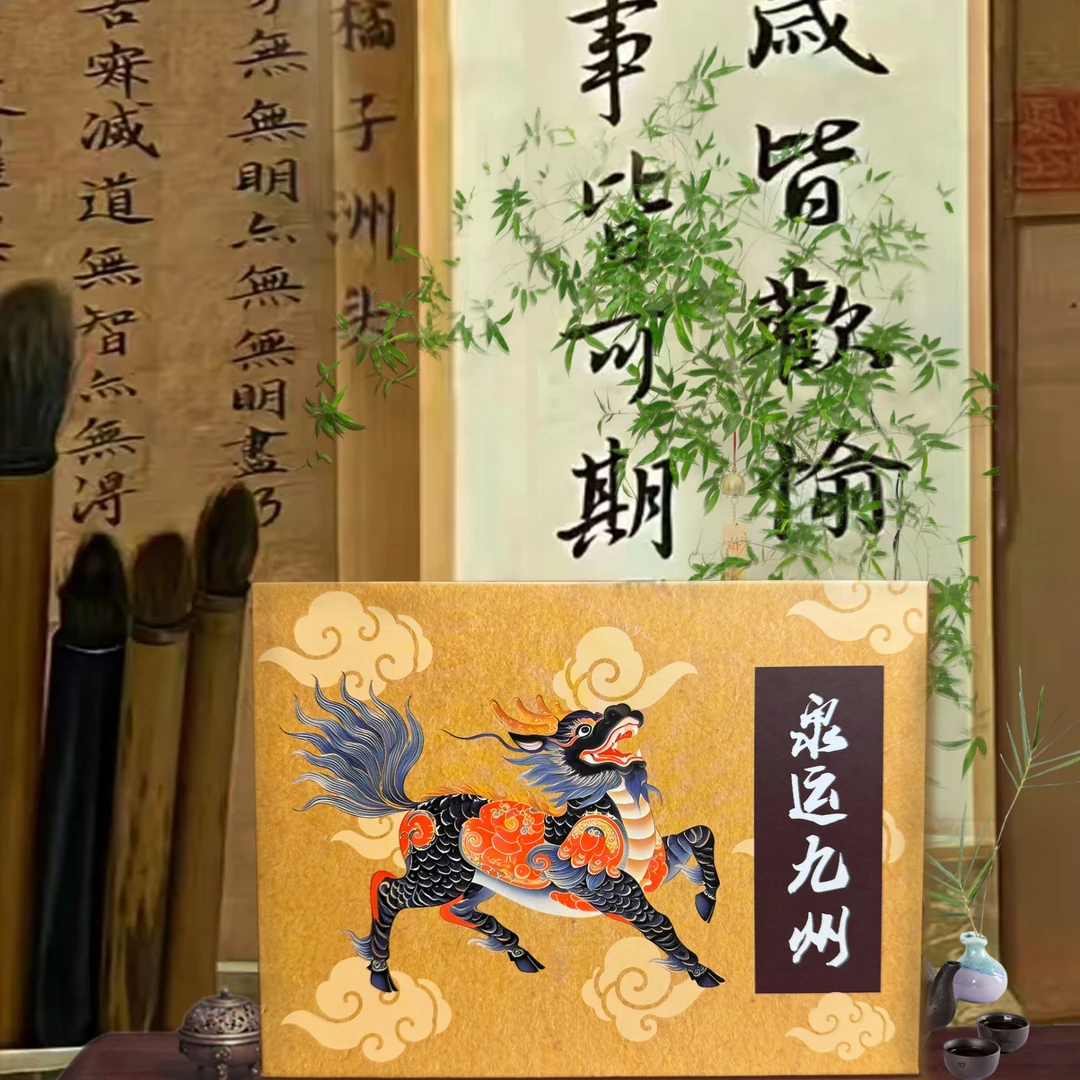 歲皆歡愉
事皆可期
橘子洲头
無無明亦無無明盡乃
苦滅道無智亦無得
泉运九州